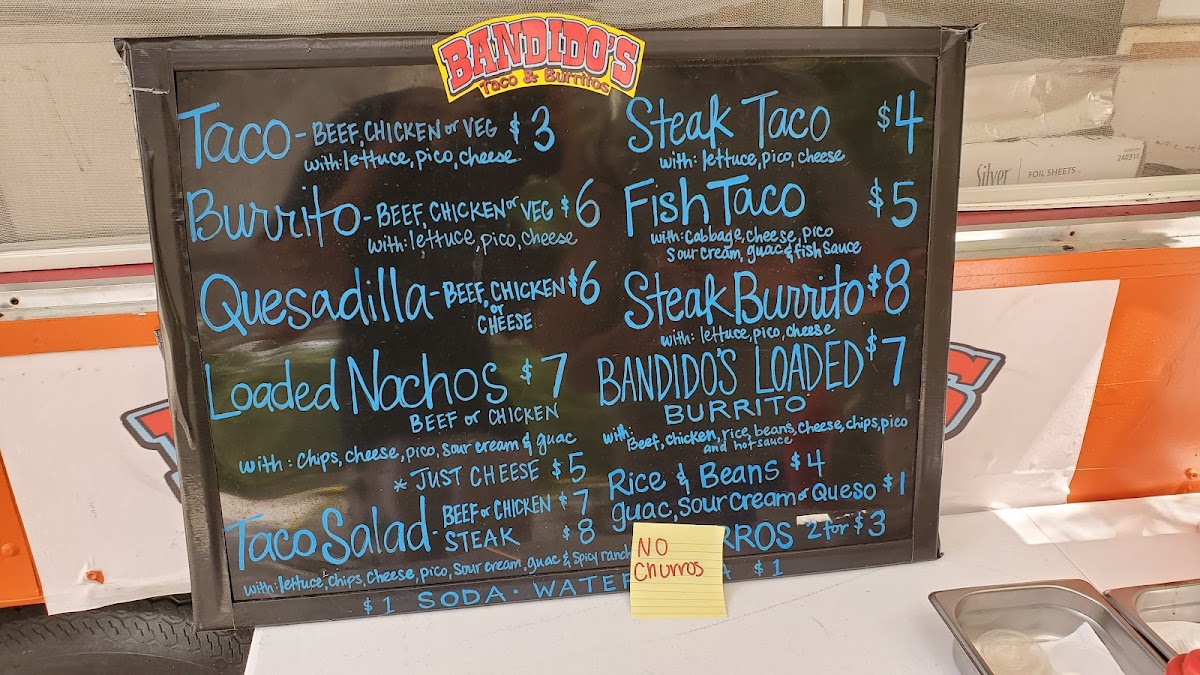 BANDIDO'S
Taco & Burritos
Taco - BEEF, CHICKEN or VEG $3
with: lettuce, pico, cheese
Burrito - BEEF, CHICKEN or VEG $6
with: lettuce, pico, cheese
Quesadilla - BEEF, CHICKEN $6
or
CHEESE
Loaded Nachos $7
BEEF or CHICKEN
with: Chips, cheese, pico, sour cream & guac
* JUST CHEESE $5
Taco Salad - BEEF or CHICKEN $7
STEAK $8
with: lettuce, chips, cheese, pico, sour cream, guac & spicy ranch
$1 SODA • WATER $1
Steak Taco $4
with: lettuce, pico, cheese
Fish Taco $5
with: cabbage, cheese, pico
sour cream, guac & fish sauce
Steak Burrito $8
with: lettuce, pico, cheese
BANDIDO'S LOADED $7
BURRITO
with: Beef, chicken, rice, beans, cheese, chips, pico
and hot sauce
Rice & Beans $4
guac, sour cream or Queso $1
RROS 2 for $3
NO
Churros
Silver FOIL SHEETS
240311